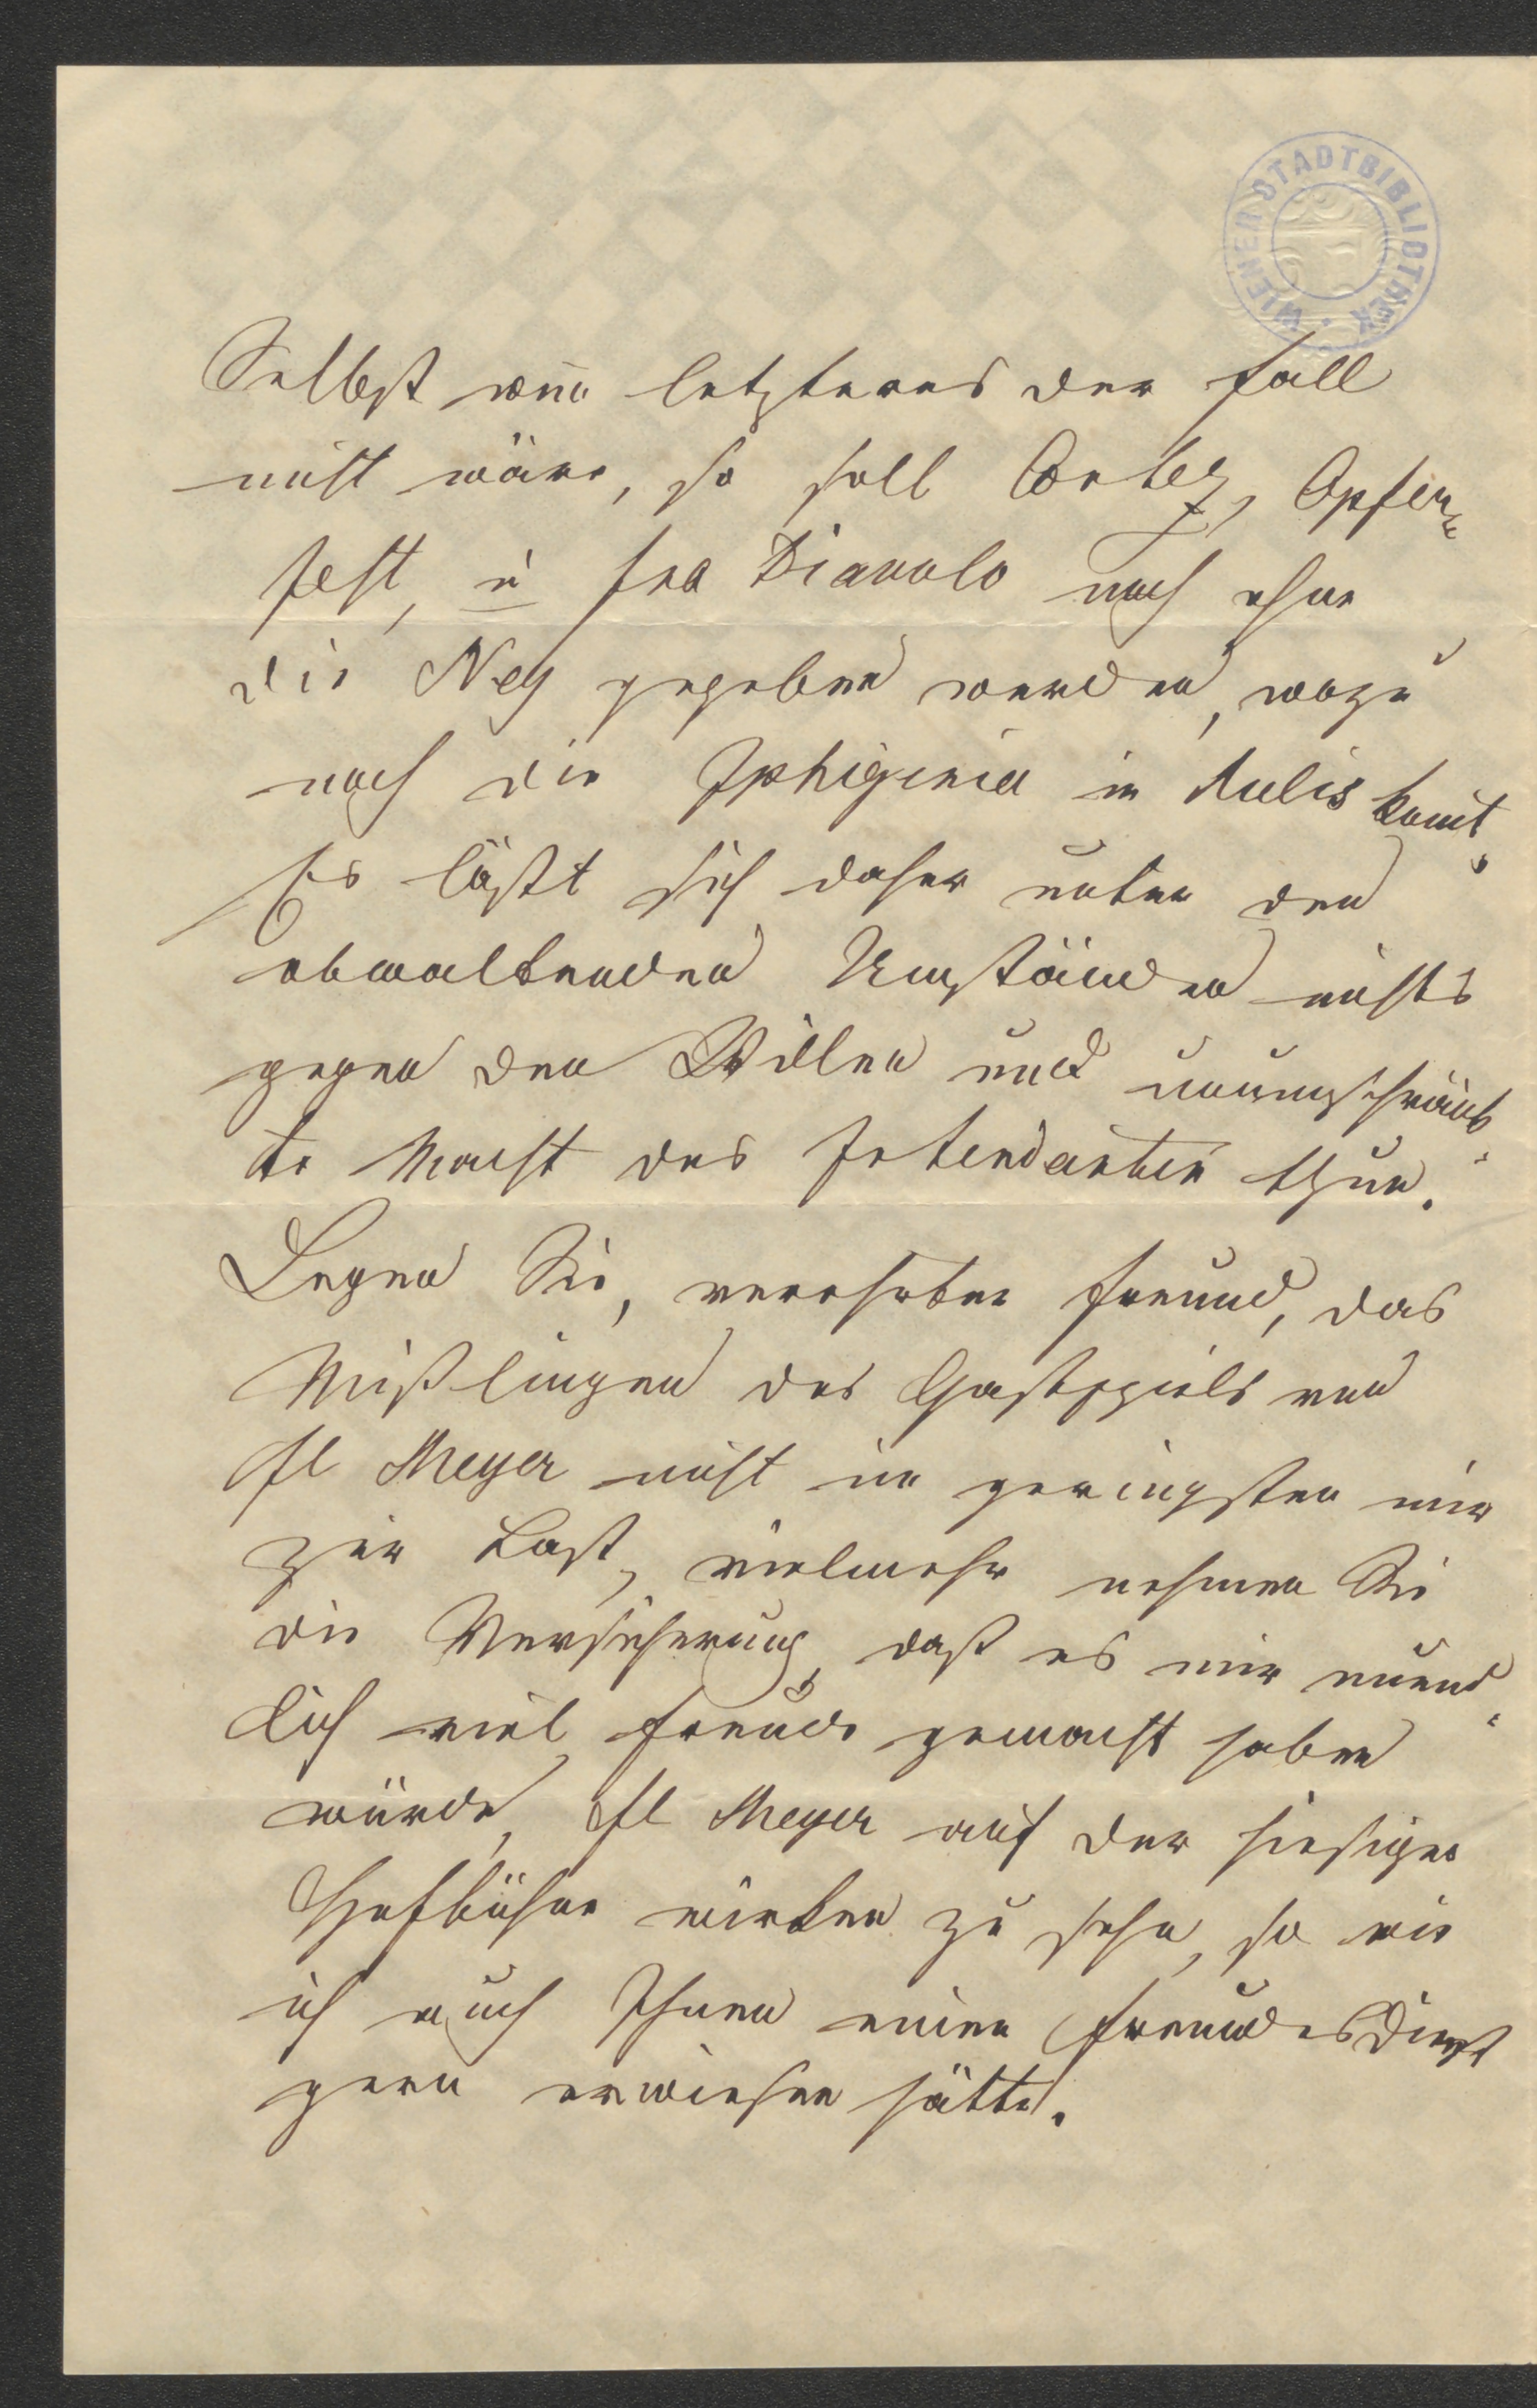 WIENER STADTBIBLIOTHEK
Selbst wen̄ letzteres der Fall
nicht wäre, so soll Cortez, Opfer=
fest, u Fra Diavolo noch ohne
die Ney gegeben werden, wozu
noch die Iphigenia in Aulis kom̄t.
Es läßt sich daher unter den
obwaltenden Umständen nichts
gegen den Willen und unumschränk-
te Macht des Intendanten thun.
Legen Sie, verehrter Freund, das
Mißlingen des Gastspiels von
Fl Meyer nicht im geringsten mir
zur Last, vielmehr nehmen Sie
die Versicherung, daß es mir unend-
lich viel Freude gemacht haben
würde, Fl Meyer auf der hiesigen
Hofbühne wirken zu sehn, so wie
ich auch Ihnen einen Freundesdienst
gern erwiesen hätte.